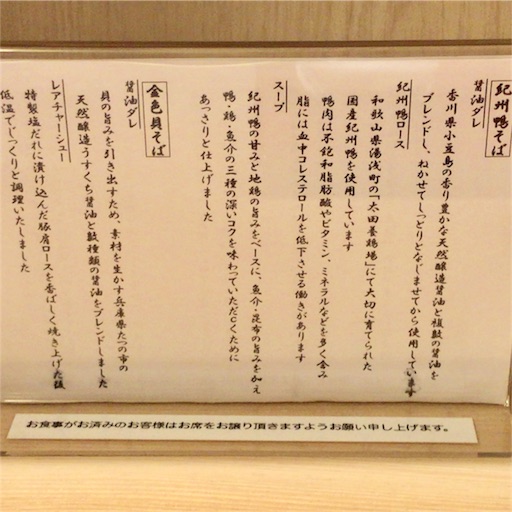 紀州鴨そば
醤油ダレ
香川県小豆島の香り豊かな天然醸造醤油と複数の醤油を
ブレンドし、ねかせてしっとりとなじませてから使用しています
紀州鴨ロース
和歌山県湯浅町の「太田養鶏場」にて大切に育てられた
国産紀州鴨を使用しています
鴨肉は不飽和脂肪酸やビタミン、ミネラルなどを多く含み
脂には血中コレステロールを低下させる働きがあります
スープ
紀州鴨の甘みと地鶏の旨みをベースに、魚介・昆布の旨みを加え
鴨・鶏・魚介の三種の深いコクを味わっていただくために
あっさりと仕上げました
金色貝そば
醤油ダレ
貝の旨みを引き出すため、素材を生かす兵庫県たつの市の
天然醸造うすくち醤油と数種類の醤油をブレンドしました
レアチャーシュー
特製塩だれに漬け込んだ豚肩ロースを香ばしく焼き上げた後
低温でじっくりと調理いたしました
お食事がお済みのお客様はお席をお譲り頂きますようお願い申し上げます。